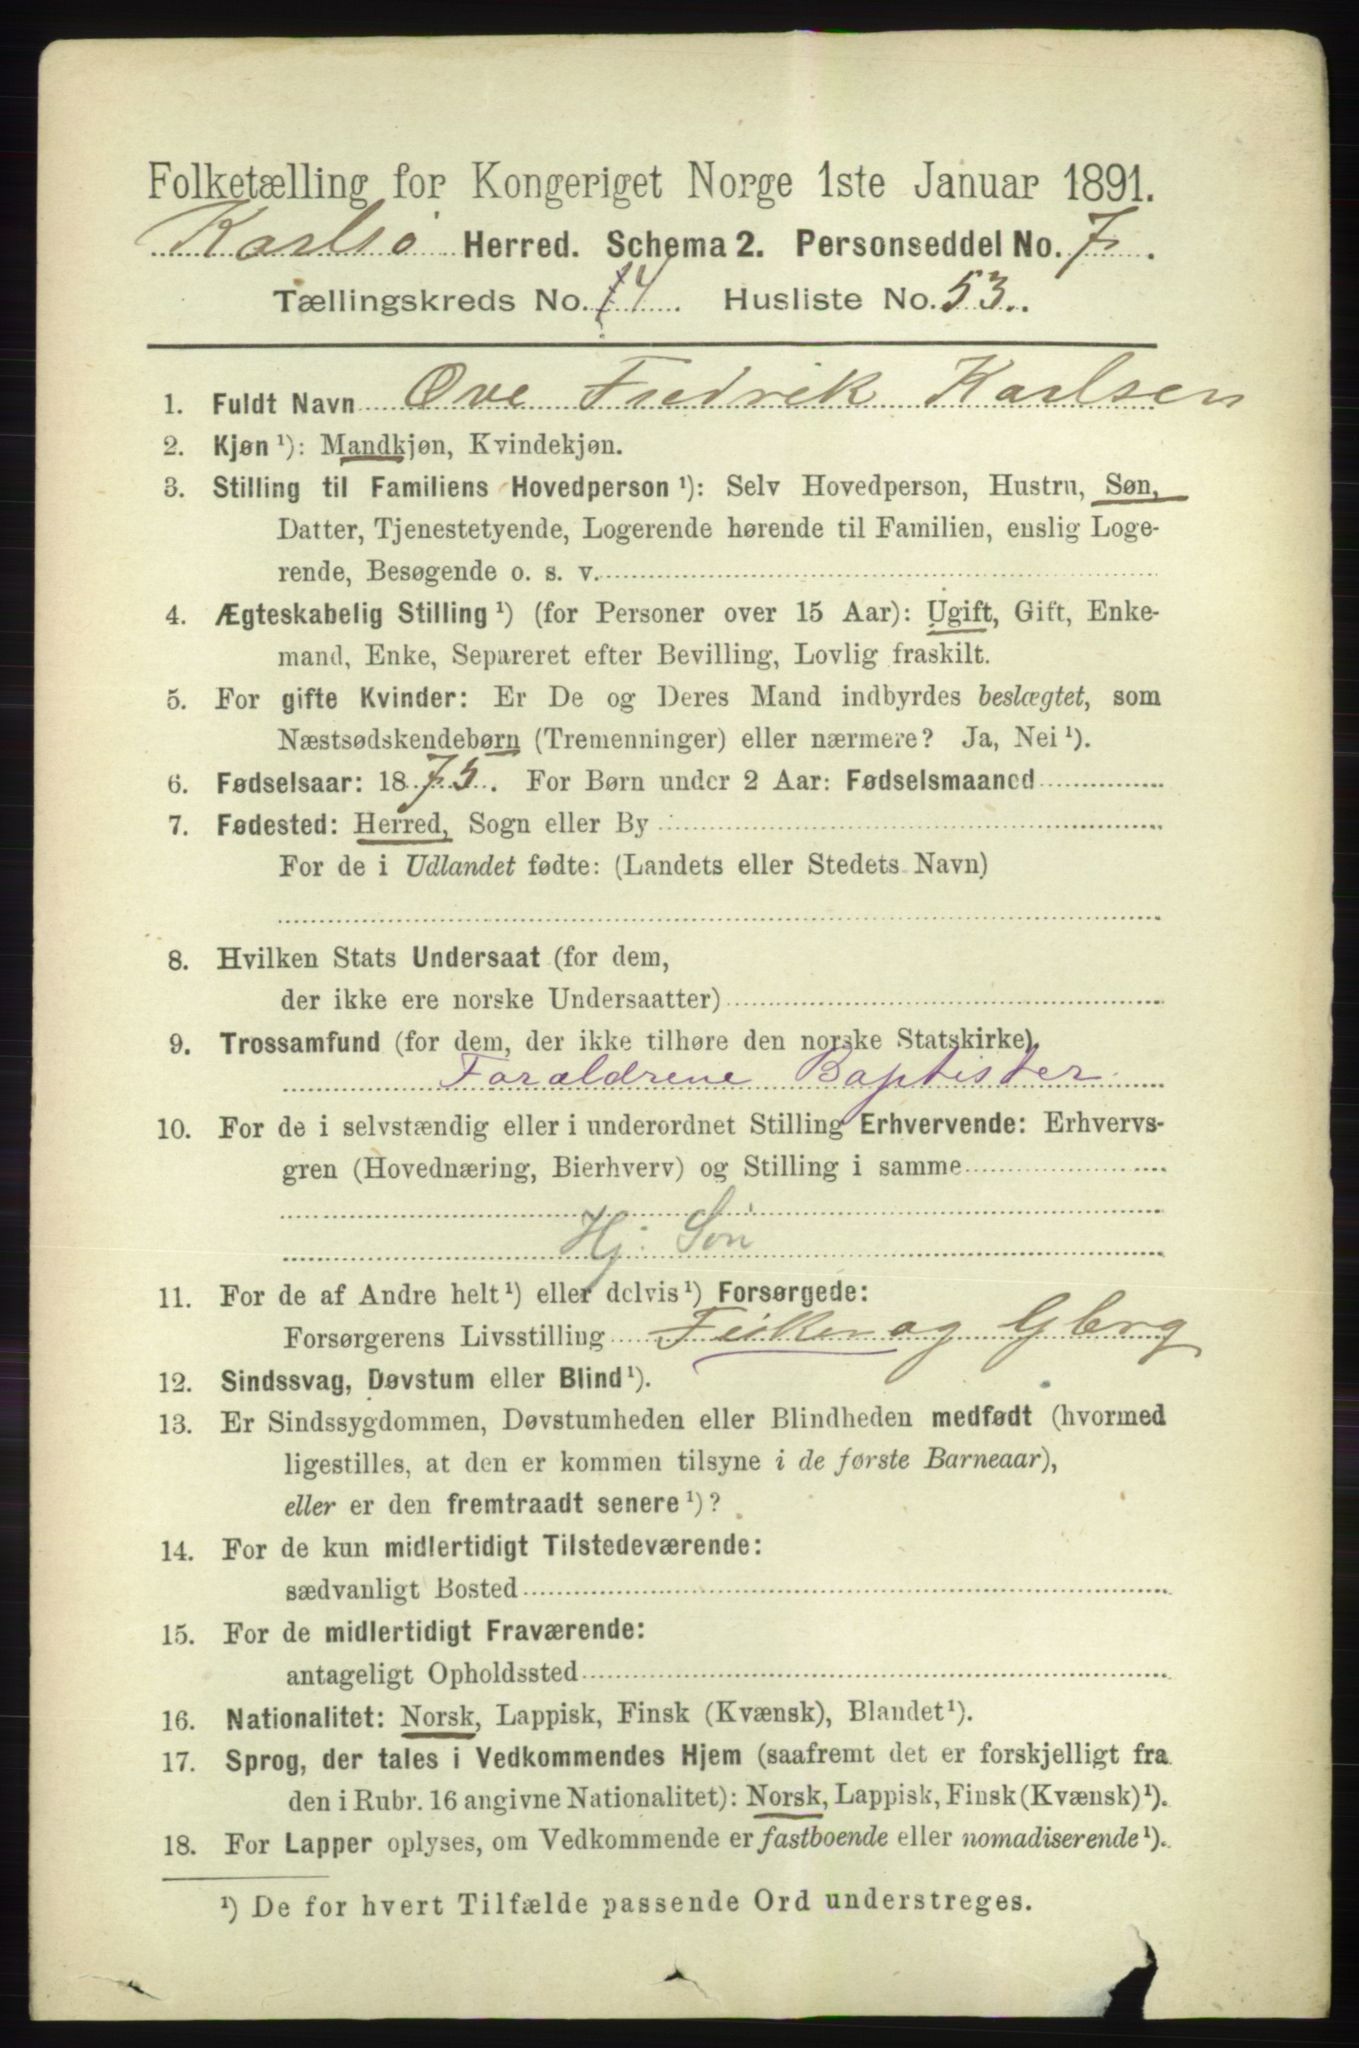 Folketælling for Kongeriget Norge 1ste Januar 1891.
Karlsø Herred. Schema 2. Personseddel No. 7.
Tællingskreds No. 14. Husliste No. 53.
1. Fuldt Navn Ove Fredrik Karlsen
2. Kjøn ¹): Mandkjøn, Kvindekjøn.
3. Stilling til Familiens Hovedperson ¹): Selv Hovedperson, Hustru, Søn,
Datter, Tjenestetyende, Logerende hørende til Familien, enslig Loge-
rende, Besøgende o. s. v.
4. Ægteskabelig Stilling ¹) (for Personer over 15 Aar): Ugift, Gift, Enke-
mand, Enke, Separeret efter Bevilling, Lovlig fraskilt.
5. For gifte Kvinder: Er De og Deres Mand indbyrdes beslægtet, som
Næstsødskendebørn (Tremenninger) eller nærmere? Ja, Nei ¹).
6. Fødselsaar: 1875. For Børn under 2 Aar: Fødselsmaaned
7. Fødested: Herred, Sogn eller By
For de i Udlandet fødte: (Landets eller Stedets Navn)
8. Hvilken Stats Undersaat (for dem,
der ikke ere norske Undersaatter)
9. Trossamfund (for dem, der ikke tilhøre den norske Statskirke)
Forældrene Baptister
10. For de i selvstændig eller i underordnet Stilling Erhvervende: Erhvervs-
gren (Hovednæring, Bierhverv) og Stilling i samme
Hj. Søn
11. For de af Andre helt ¹) eller delvis ¹) Forsørgede:
Forsørgerens Livsstilling Fisker og Gbrg
12. Sindssvag, Døvstum eller Blind ¹).
13. Er Sindssygdommen, Døvstumheden eller Blindheden medfødt (hvormed
ligestilles, at den er kommen tilsyne i de første Barneaar),
eller er den fremtraadt senere ¹)?
14. For de kun midlertidigt Tilstedeværende:
sædvanligt Bosted
15. For de midlertidigt Fraværende:
antageligt Opholdssted
16. Nationalitet: Norsk, Lappisk, Finsk (Kvænsk), Blandet ¹).
17. Sprog, der tales i Vedkommendes Hjem (saafremt det er forskjelligt fra
den i Rubr. 16 angivne Nationalitet): Norsk, Lappisk, Finsk (Kvænsk) ¹).
18. For Lapper oplyses, om Vedkommende er fastboende eller nomadiserende ¹).
¹) De for hvert Tilfælde passende Ord understreges.